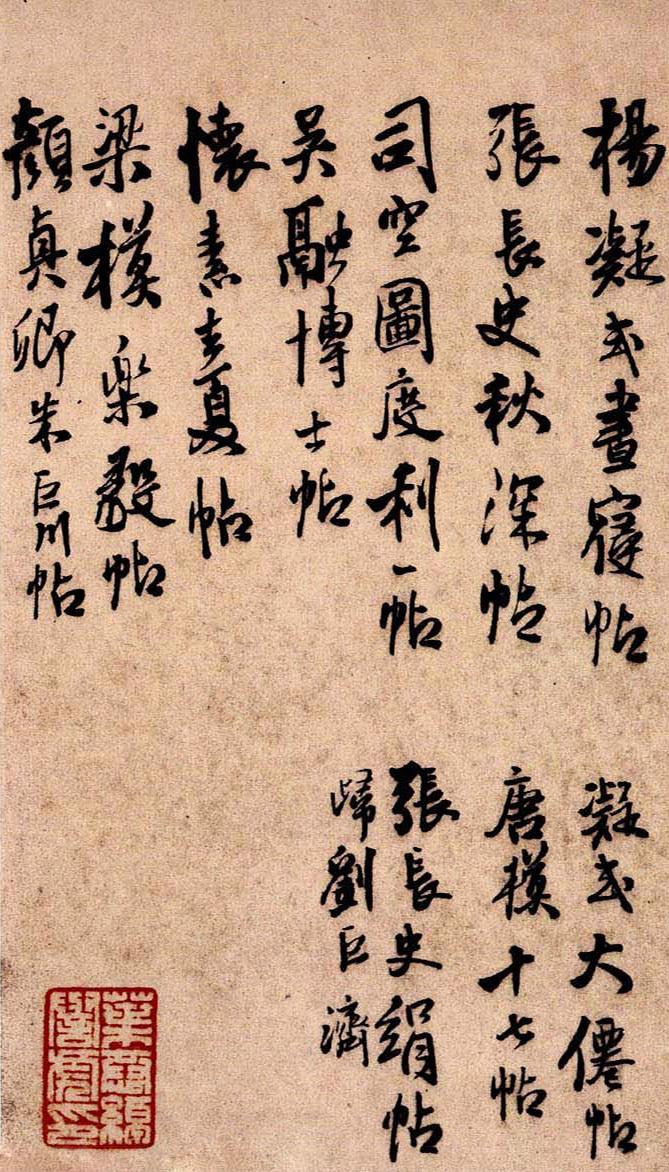 楊凝式晝寢帖
凝式大僊帖
張長史秋深帖
唐模十七帖
司空圖度利一帖
張長史絹帖
歸劉巨濟
吳融博士帖
懷素去夏帖
梁模樂毅帖
顏真卿朱巨川帖